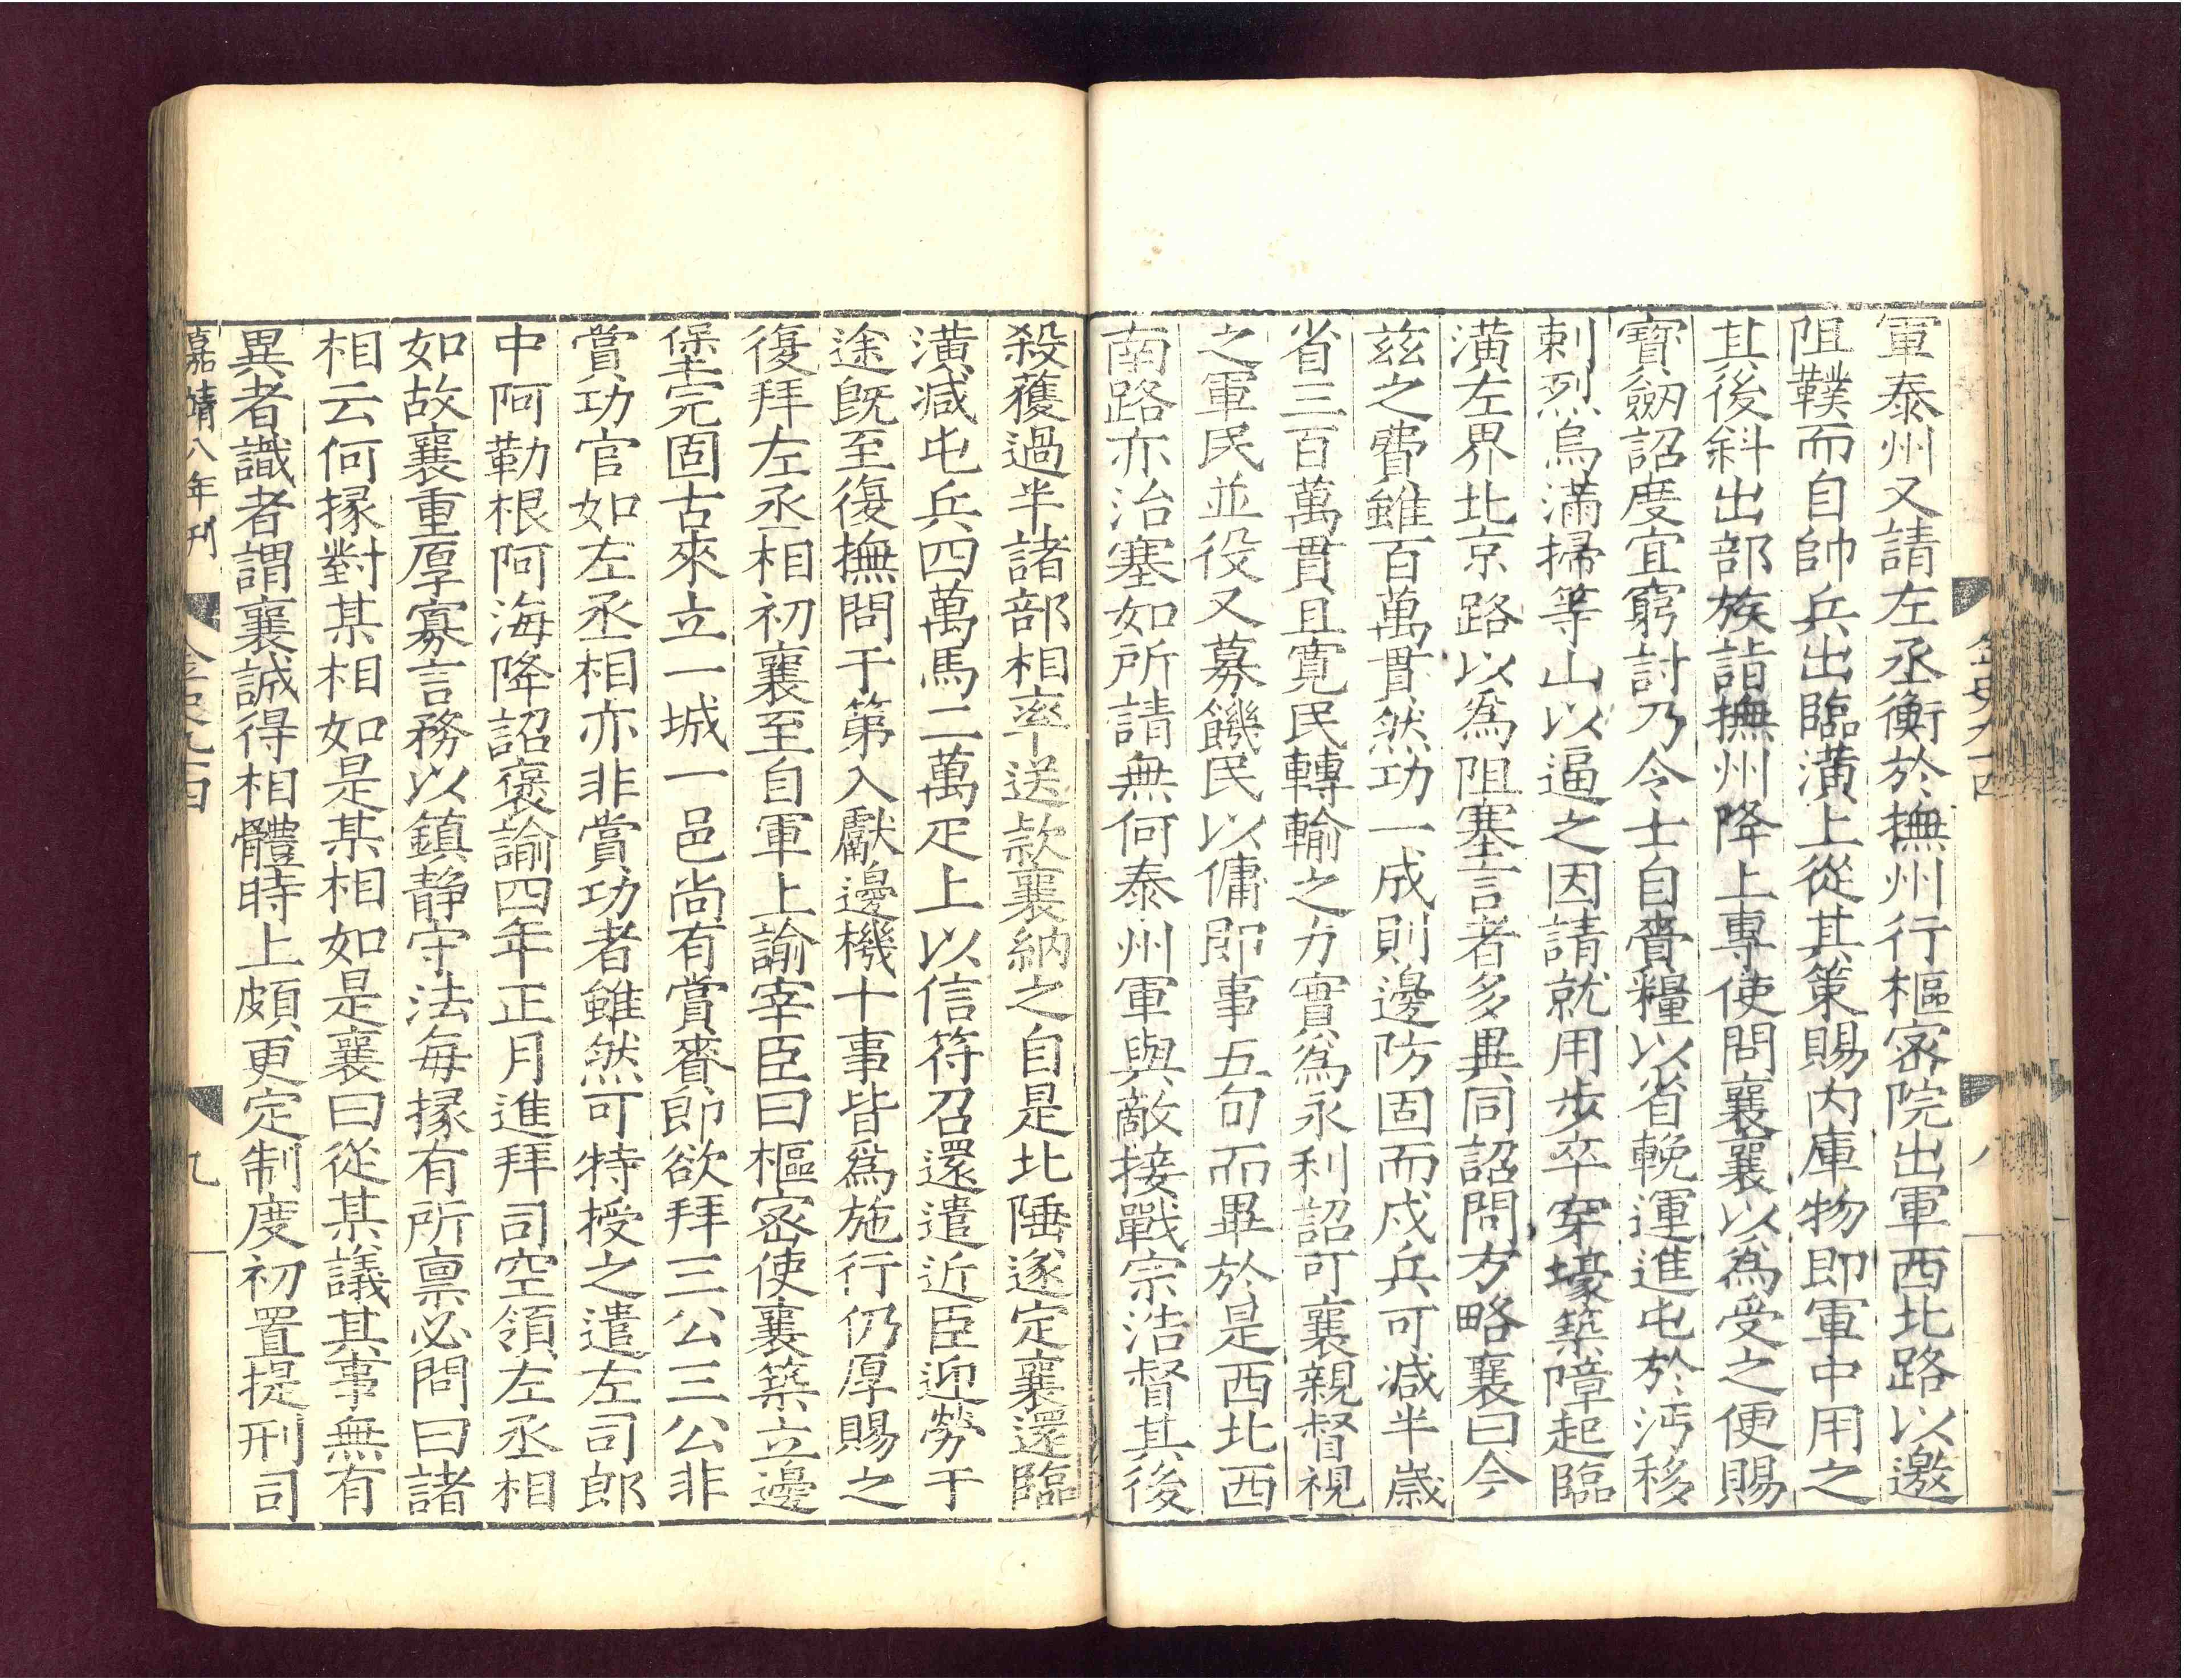 金史九十四
八
軍泰州又請左丞衡於撫州行樞密院出軍西北路以邀
阻䪁而自帥兵出臨潢上從其策賜內庫物即軍中用之
其後斜出部族詣撫州降上專使問襄襄以為受之便賜
寶劒詔度宜窮討乃令士自賫糧以省輓運進屯於沔移
剌烈烏滿掃等山以逼之因請就用步卒穿壕築障起臨
潢左界北京路以為阻塞言者多異同詔問方略襄曰今
茲之費雖百萬貫然功一成則邊防固而戍兵可減半歲
省三百萬貫且寬民轉輸之力實為永利詔可襄親督視
之軍民並役又募饑民以傭即事五旬而畢於是西北西
南路亦治塞如所請無何泰州軍與敵接戰宗浩督其後
殺獲過半諸部相率送款襄納之自是北陲遂定襄還臨
潢減屯兵四萬馬二萬疋上以信符召還遣近臣迎勞于
途既至復撫問于第入獻邊機十事皆為施行仍厚賜之
復拜左丞相初襄至自軍上諭宰臣曰樞密使襄築立邊
堡完固古來立一城一邑尚有賞賚即欲拜三公三公非
賞功官如左丞相亦非賞功者雖然可特授之遣左司郎
中阿勒根阿海降詔褒諭四年正月進拜司空領左丞相
如故襄重厚寡言務以鎮靜守法每掾有所稟必問曰諸
相云何掾對某相如是某相如是襄曰從某議其事無有
異者識者謂襄誠得相體時上頗更定制度初置提刑司
嘉靖八年刊
金史九十四
九